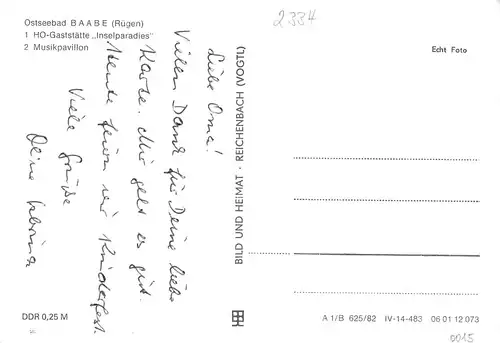 Ostseebad BAABE (Rügen)
1 HO-Gaststätte „Inselparadies"
2 Musikpavillon
2334
Echt Foto
Liebe Oma!
Vielen Dank für Deine liebe
Karte. Mir geht es gut.
Heute feiern wir Kinderfest.
Viele Grüße
Deine
BILD UND HEIMAT · REICHENBACH (VOGTL)
DDR 0,25 M
A 1/B 625/82 IV-14-483 06 01 12 073
0015